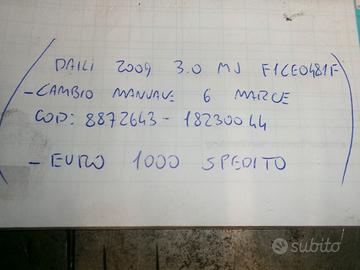 DAILI 2009 3.0 MJ F1CE0481F
- CAMBIO MANUALE 6 MARCE
COD: 8872643 - 18230044
- EURO 1000 SPEDITO
subito